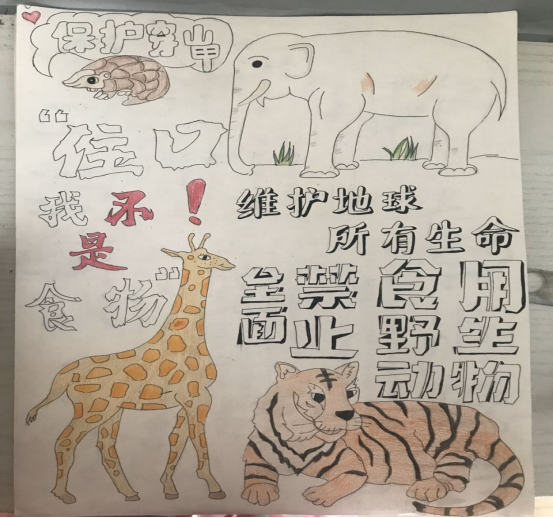 保护穿山甲
“住口
我不！
是
食物”
维护地球
所有生命
全面禁止食用
野生
动物